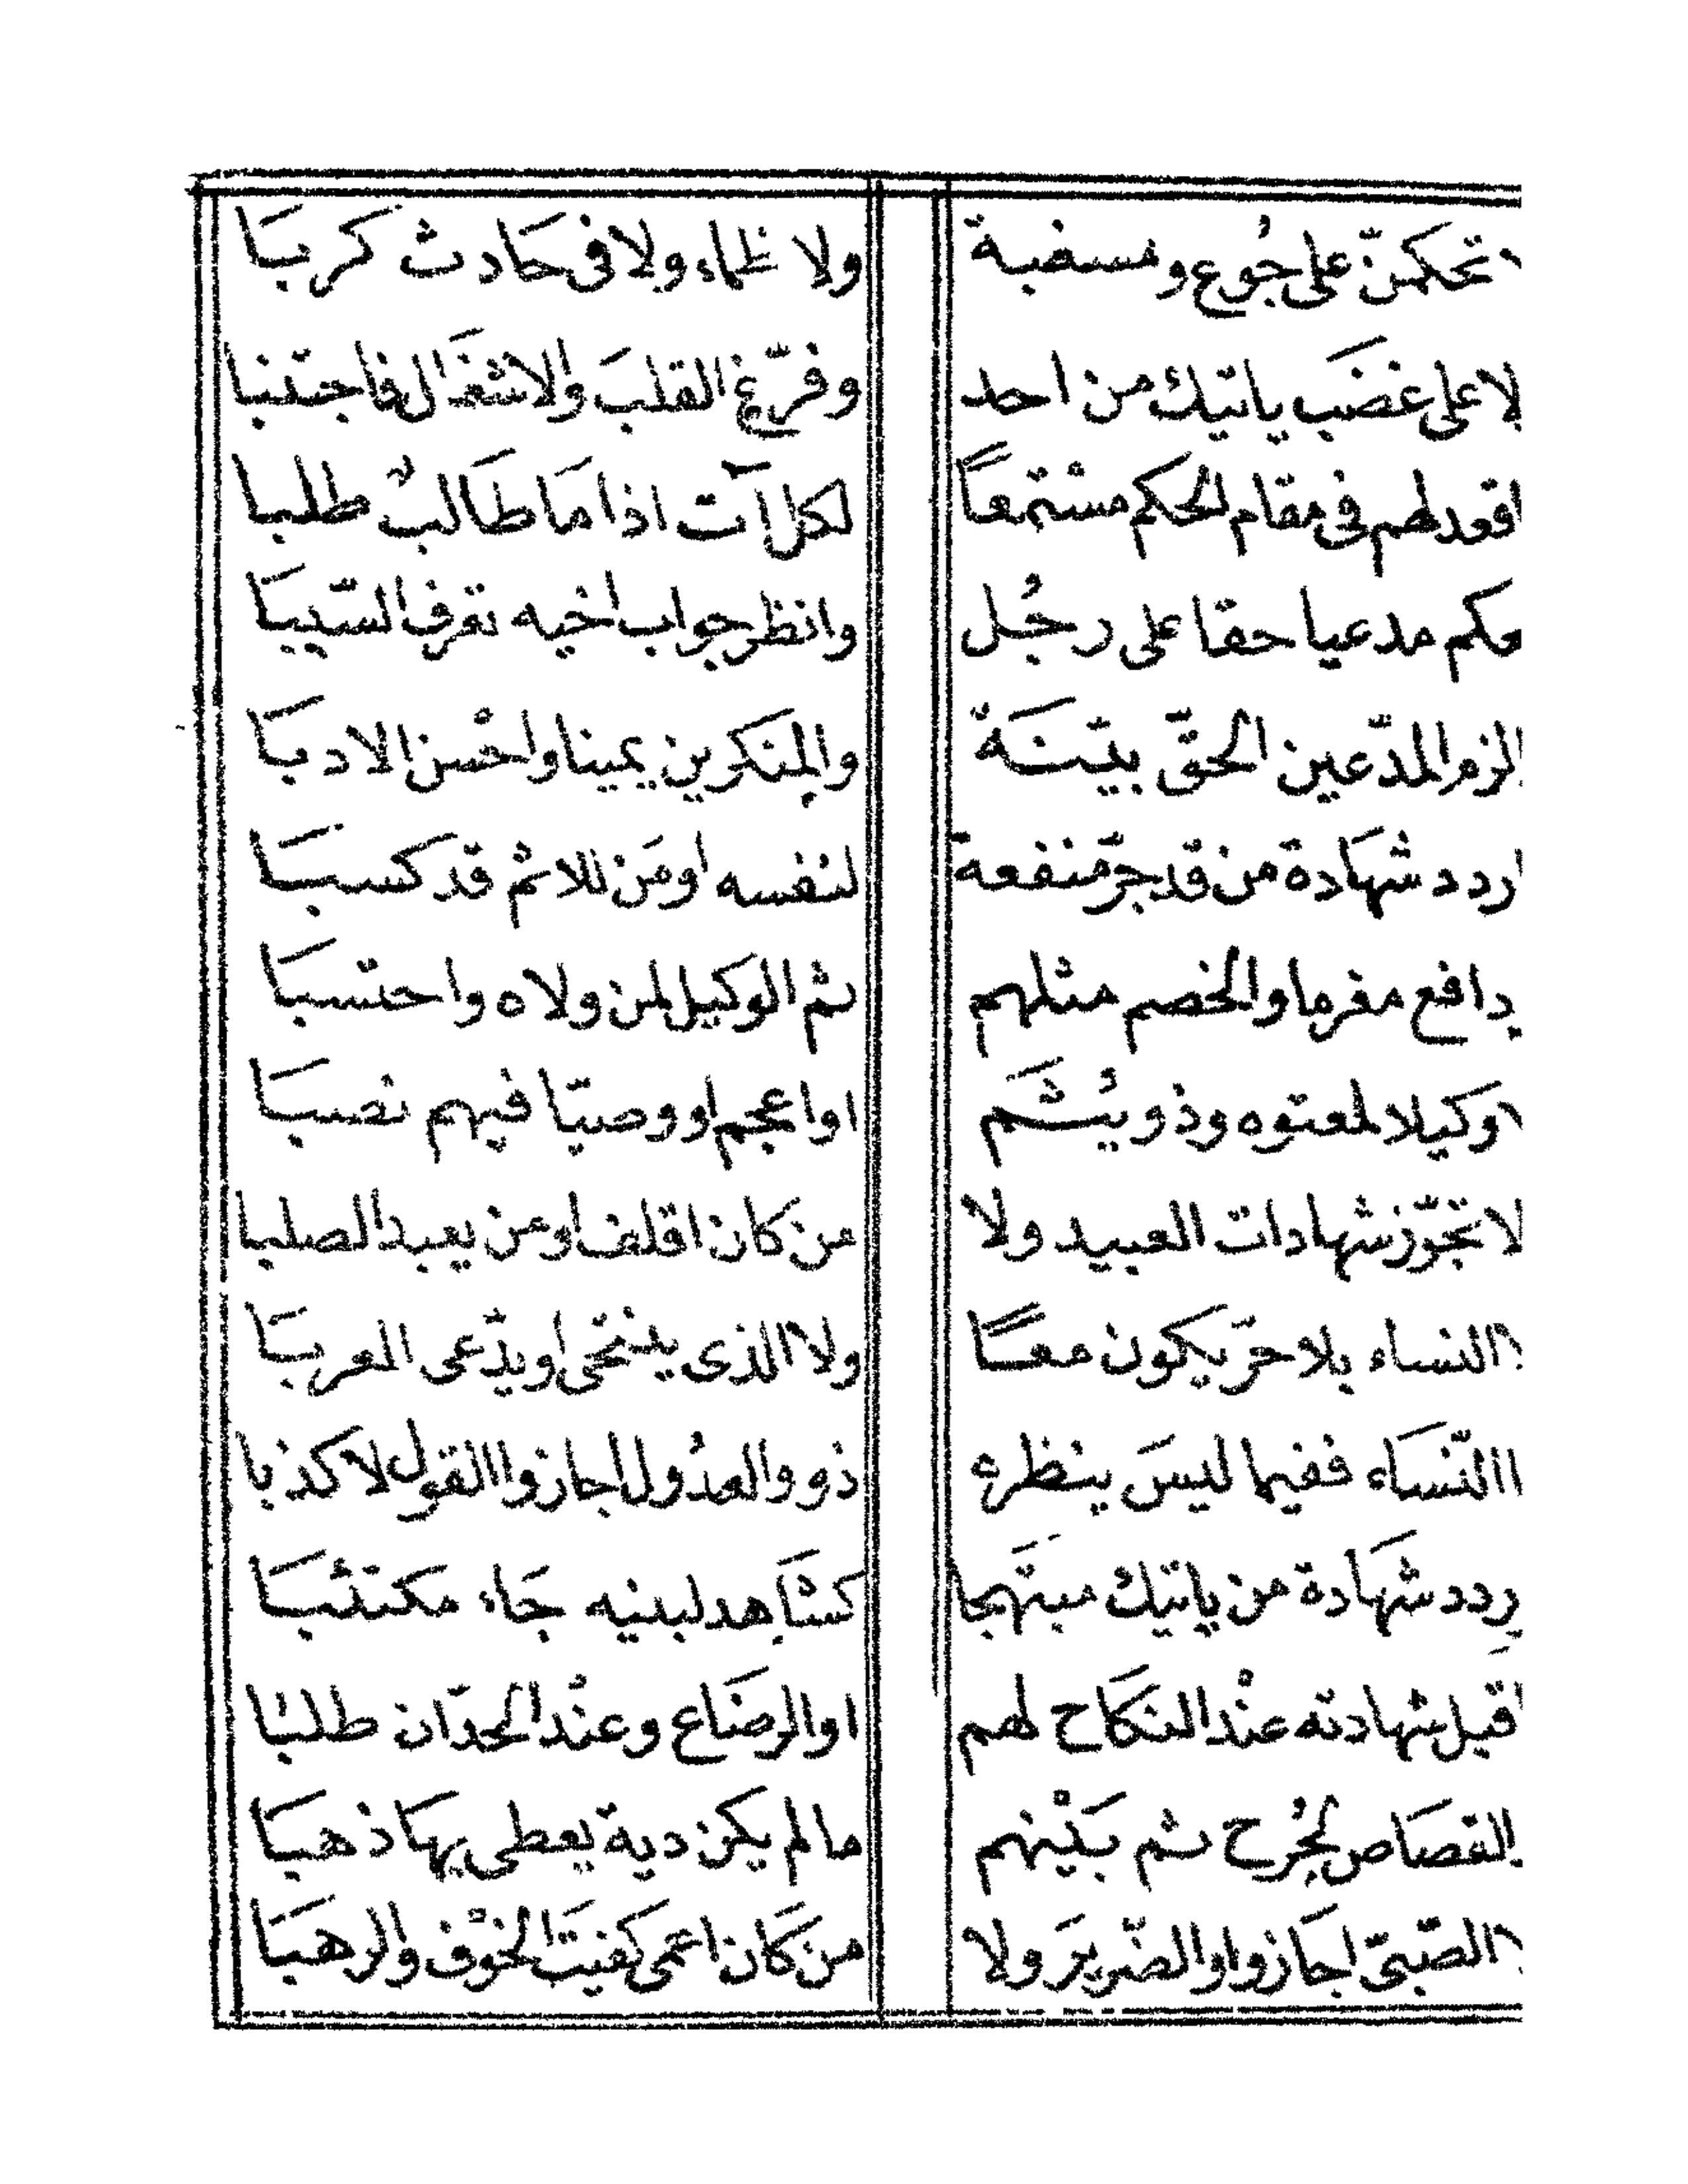 تحكمنّ على جُوع ومسغبة ولا ظماء ولا فى حَادث كربَا
لا على غضَب ياتيك من احد وفرّغ القلبَ والاشغَال فاجتنبا
اقعد لهم فى مقام الحكم مسْتمعًا لكل آت اذا مَا طَالبٌ طلبا
حكم مدعيا حقا على رجُل وانظر جواب اخيه تعرف السّببَا
الزم المدّعين الحقّ بيّنَة والمنكرين يمينا واحْسن الادبَا
اردد شهَادة من قد جرّ منفعة لنفسه او مَن للاثم قد كسبَا
دافع مغرما والخصم مثلهم ثم الوكيل لمن ولاه واحتسبَا
وكيلا لمعتوه وذو يُتَم او اعجم او وصيّا فيهم نصبَا
لا تجوّز شهادات العبيد ولا من كان اقلف او من يعبد الصلبا
النساء بلا حرّ يكون معًا ولا الذى ينتحى او يدّعى العربَا
النّسَاء ففيما ليسَ ينظره ذوو العدُول اجازوا القول لا كذبا
ردد شهَادة من ياتيك مبتَهجا كشَاهد لبنيه جَاء مكتئبَا
اقبل شهادته عنْد النكَاح لهم او الرضَاع وعنْد الحدّان طلبَا
القصَاص لجُرح ثم بَيْنهم ما لم يكن دية يعطى بهَا ذهبَا
الصّبىّ اجَازوا والضّريرَ ولا من كَان اعمى كفيتَ الخوْف والرهبَا